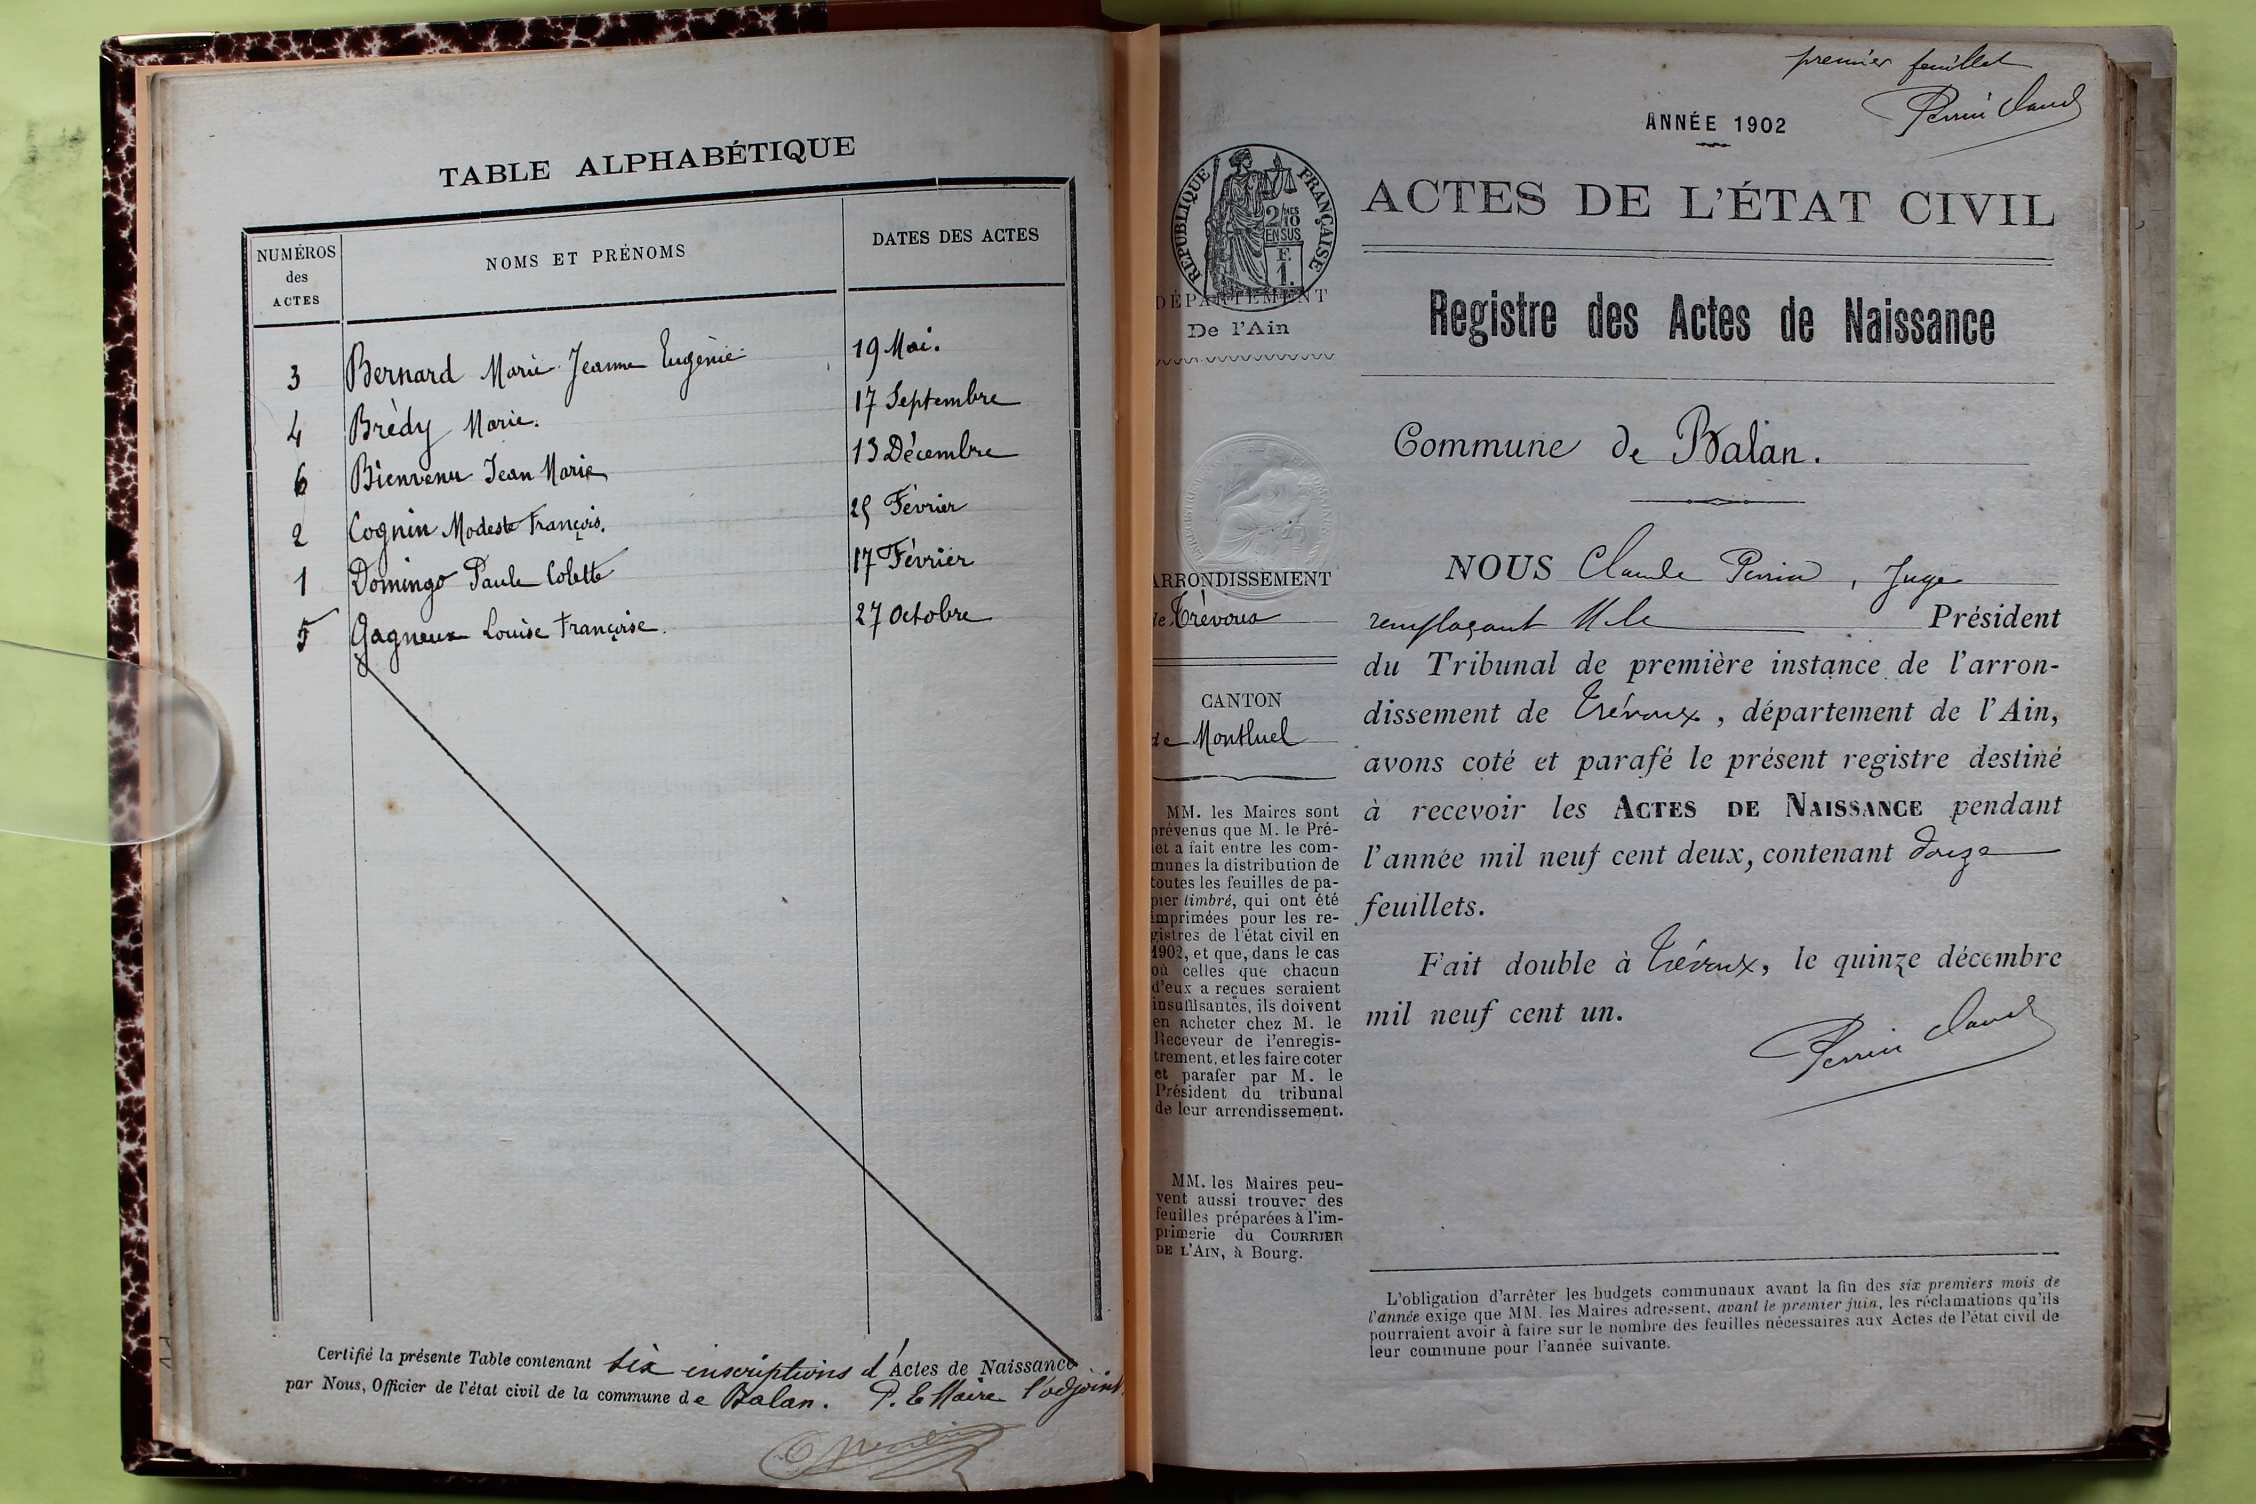 TABLE ALPHABÉTIQUE
NUMÉROS
des
ACTES
NOMS ET PRÉNOMS
DATES DES ACTES
3 Bernard Marie Jeanne Eugènie 19 Mai.
4 Brèdy Marie. 17 Septembre
6 Bienvenu Jean Marie 13 Décembre
2 Cognin Modeste François. 25 Février
1 Domingo Paule Colette 17 Février
5 Gagneux Louise Françoise. 27 Octobre
Certifié la présente Table contenant six inscriptions d'Actes de Naissance
par Nous, Officier de l'état civil de la commune de Balan. P. le Maire l'adjoint
premier feuillet
Perrin Claude
ANNÉE 1902
RÉPUBLIQUE FRANÇAISE
2/10
MES
EN SUS
F.
1.
ACTES DE L'ÉTAT CIVIL
DÉPARTEMENT
De l'Ain
Registre des Actes de Naissance
Commune de Balan.
ARRONDISSEMENT
de Trévoux
CANTON
de Montluel
MM. les Maires sont
prévenus que M. le Pré-
fet a fait entre les com-
munes la distribution de
toutes les feuilles de pa-
pier timbré, qui ont été
imprimées pour les re-
gistres de l'état civil en
1902, et que, dans le cas
où celles que chacun
d'eux a reçues seraient
insuffisantes, ils doivent
en acheter chez M. le
Receveur de l'enregis-
trement, et les faire coter
et parafer par M. le
Président du tribunal
de leur arrondissement.
MM. les Maires peu-
vent aussi trouver des
feuilles préparées à l'im-
primerie du COURRIER
DE L'AIN, à Bourg.
NOUS Claude Perrin, Juge
remplaçant M. le Président
du Tribunal de première instance de l'arron-
dissement de Trévoux, département de l'Ain,
avons coté et parafé le présent registre destiné
à recevoir les ACTES DE NAISSANCE pendant
l'année mil neuf cent deux, contenant douze
feuillets.
Fait double à Trévoux, le quinze décembre
mil neuf cent un.
Perrin Claude
L'obligation d'arrêter les budgets communaux avant la fin des six premiers mois de
l'année exige que MM. les Maires adressent, avant le premier juin, les réclamations qu'ils
pourraient avoir à faire sur le nombre des feuilles nécessaires aux Actes de l'état civil de
leur commune pour l'année suivante.